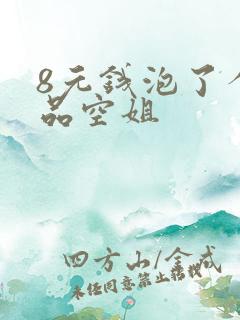 8元錢泡了
品空姐
四方山/金戒
未经同意禁止转载